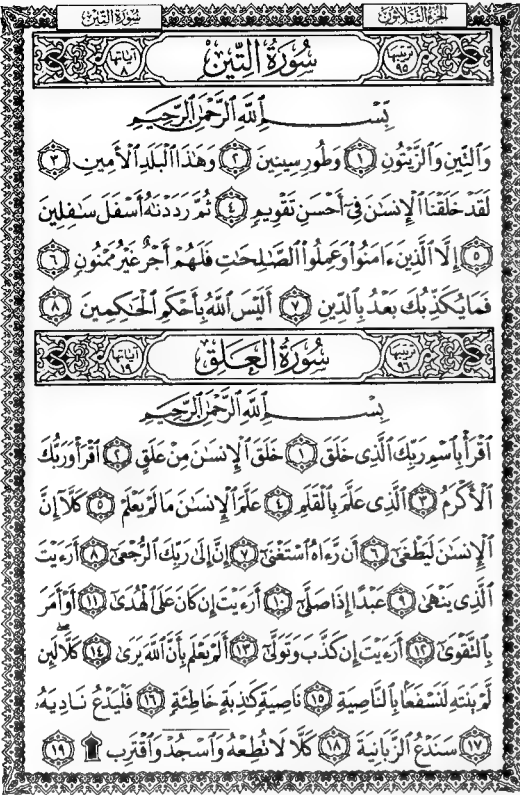 الجزء الثلاثون
سورة التين
ترتيبها ٩٥
سُورَةُ التِّينِ
آياتها ٨
بِسْمِ اللَّهِ الرَّحْمَٰنِ الرَّحِيمِ
وَالتِّينِ وَالزَّيْتُونِ ١ وَطُورِ سِينِينَ ٢ وَهَٰذَا الْبَلَدِ الْأَمِينِ ٣
لَقَدْ خَلَقْنَا الْإِنسَٰنَ فِي أَحْسَنِ تَقْوِيمٍ ٤ ثُمَّ رَدَدْنَٰهُ أَسْفَلَ سَٰفِلِينَ
٥ إِلَّا الَّذِينَ ءَامَنُوا وَعَمِلُوا الصَّٰلِحَٰتِ فَلَهُمْ أَجْرٌ غَيْرُ مَمْنُونٍ ٦
فَمَا يُكَذِّبُكَ بَعْدُ بِالدِّينِ ٧ أَلَيْسَ اللَّهُ بِأَحْكَمِ الْحَٰكِمِينَ ٨
ترتيبها ٩٦
سُورَةُ الْعَلَقِ
آياتها ١٩
بِسْمِ اللَّهِ الرَّحْمَٰنِ الرَّحِيمِ
اقْرَأْ بِاسْمِ رَبِّكَ الَّذِي خَلَقَ ١ خَلَقَ الْإِنسَٰنَ مِنْ عَلَقٍ ٢ اقْرَأْ وَرَبُّكَ
الْأَكْرَمُ ٣ الَّذِي عَلَّمَ بِالْقَلَمِ ٤ عَلَّمَ الْإِنسَٰنَ مَا لَمْ يَعْلَمْ ٥ كَلَّا إِنَّ
الْإِنسَٰنَ لَيَطْغَىٰ ٦ أَن رَّءَاهُ اسْتَغْنَىٰ ٧ إِنَّ إِلَىٰ رَبِّكَ الرُّجْعَىٰ ٨ أَرَءَيْتَ
الَّذِي يَنْهَىٰ ٩ عَبْدًا إِذَا صَلَّىٰ ١٠ أَرَءَيْتَ إِن كَانَ عَلَى الْهُدَىٰ ١١ أَوْ أَمَرَ
بِالتَّقْوَىٰ ١٢ أَرَءَيْتَ إِن كَذَّبَ وَتَوَلَّىٰ ١٣ أَلَمْ يَعْلَم بِأَنَّ اللَّهَ يَرَىٰ ١٤ كَلَّا لَئِن
لَّمْ يَنتَهِ لَنَسْفَعًا بِالنَّاصِيَةِ ١٥ نَاصِيَةٍ كَٰذِبَةٍ خَاطِئَةٍ ١٦ فَلْيَدْعُ نَادِيَهُۥ
١٧ سَنَدْعُ الزَّبَانِيَةَ ١٨ كَلَّا لَا تُطِعْهُ وَاسْجُدْ وَاقْتَرِب ۩ ١٩